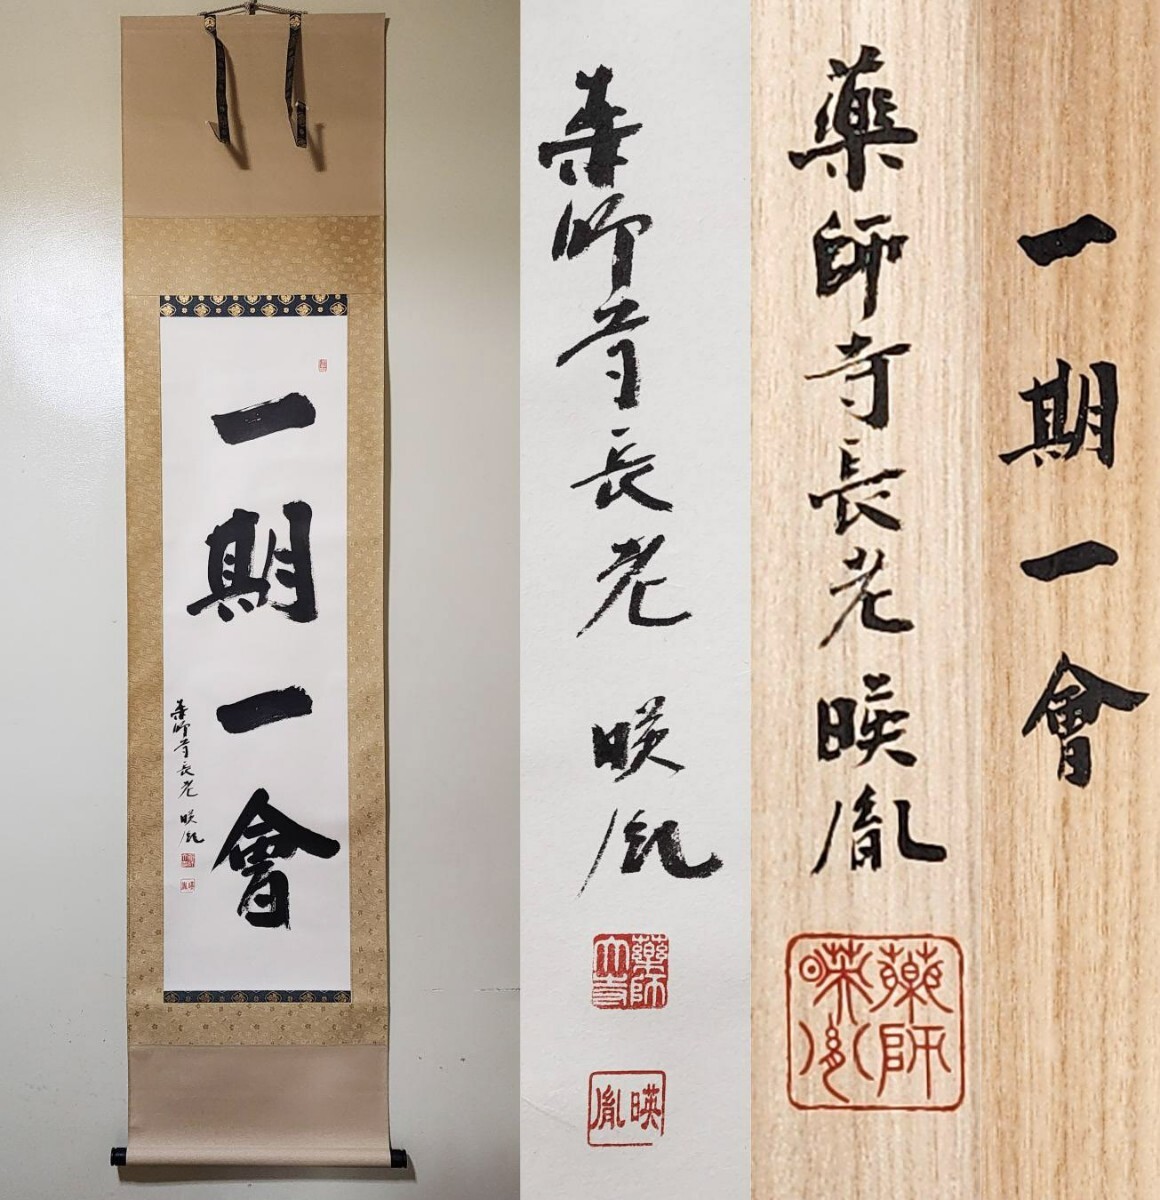 一期一會
薬師寺長老 暎胤
薬師寺長老 暎胤
藥師大寺
暎胤
一期一會
藥師寺長老暎胤
藥師暎胤